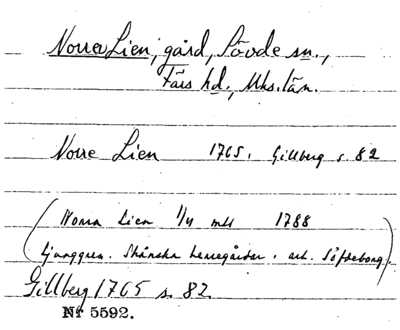 Norra Lien, gård, Sövde sn.,
Färs hd., Mks. län.
Norre Lien 1765. Gillberg s. 82
(Norra Lien 1/4 mtl 1788
Ljunggren. Skånska herregårdar. art. Söfdeborg.)
Gillberg 1765 s. 82
Nr 5592.